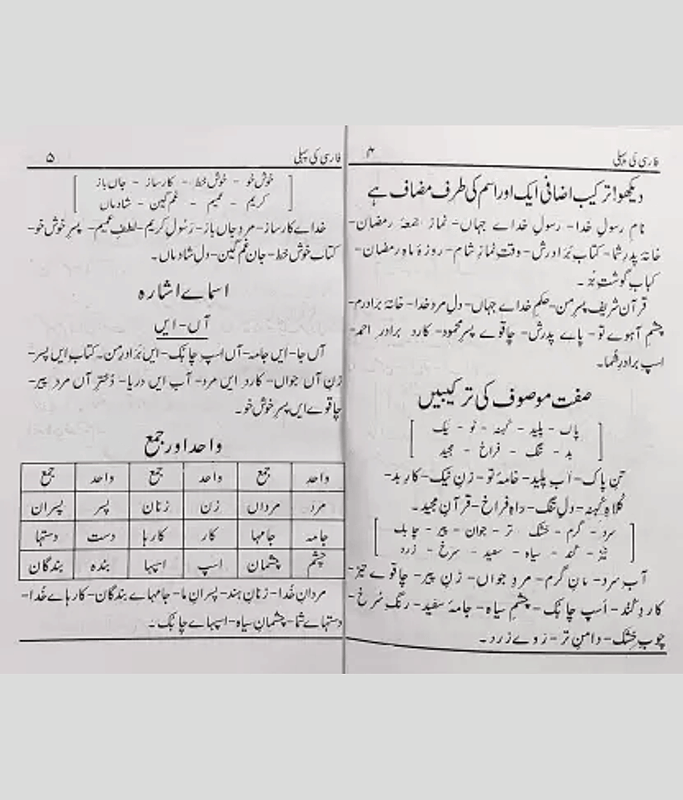 فارسی کی پہلی ۴
دیکھو! ترکیب اضافی ایک اور اسم کی طرف مضاف ہے
نامِ رسولِ خدا - رسولِ خداے جہاں - نمازِ جمعۂ رمضان -
خانۂ پدرِ شما - کتابِ برادرش - وقتِ نمازِ شام - روزۂ ماہِ رمضان -
کبابِ گوشتِ بز -
قرآن شریفِ پسرِ من - حکمِ خداے جہاں - دلِ مردِ خدا - خانۂ برادرم -
چشمِ آہوے تو - پاے پدرش - چاقوے پسرِ محمود - کاردِ برادرِ احمد -
اسپِ برادرِ شما -
صفت موصوف کی ترکیبیں
پاک - پلید - کہنہ - نو - نیک
بد - تنگ - فراخ - مجید
تنِ پاک - آبِ پلید - خامۂ نو - زنِ نیک - کارِ بد -
کلاہِ کہنہ - دلِ تنگ - راہِ فراخ - قرآنِ مجید -
سرد - گرم - خشک - تر - جوان - پیر - چابک
تیز - کند - سیاہ - سفید - سرخ - زرد
آبِ سرد - نانِ گرم - مردِ جواں - زنِ پیر - چاقوے تیز -
کاردِ کُند - اسپِ چابک - چشمِ سیاہ - جامۂ سفید - رنگِ سُرخ -
چوبِ خشک - دامنِ تر - روے زرد -
فارسی کی پہلی ۵
خوش خو - خوش خط - کارساز - جاں باز
کریم - عمیم - غم گین - شادماں
خداے کارساز - مردِ جاں باز - رسولِ کریم - لطفِ عمیم - پسرِ خوش خو -
کتابِ خوش خط - جانِ غم گین - دلِ شادماں -
اسماے اشارہ
آں - ایں
آں جا - ایں جامہ - آں اسپِ چابک - ایں برادرِ من - کتابِ ایں پسر -
زنِ آں جواں - کاردِ ایں مرد - آبِ ایں دریا - دُخترِ آں مردِ پیر -
چاقوے ایں پسرِ خوش خو -
واحد اور جمع
واحد جمع واحد جمع واحد جمع
مرد مرداں زن زنان پسر پسران
جامہ جامہا کار کارہا دست دستہا
چشم چشمان اسپ اسپہا بندہ بندگان
مردانِ خُدا - زنانِ ہند - پسرانِ ما - جامہاے بندگان - کارہاے خُدا -
دستہاے شما - چشمانِ سیاہ - اسپہاے چابک -